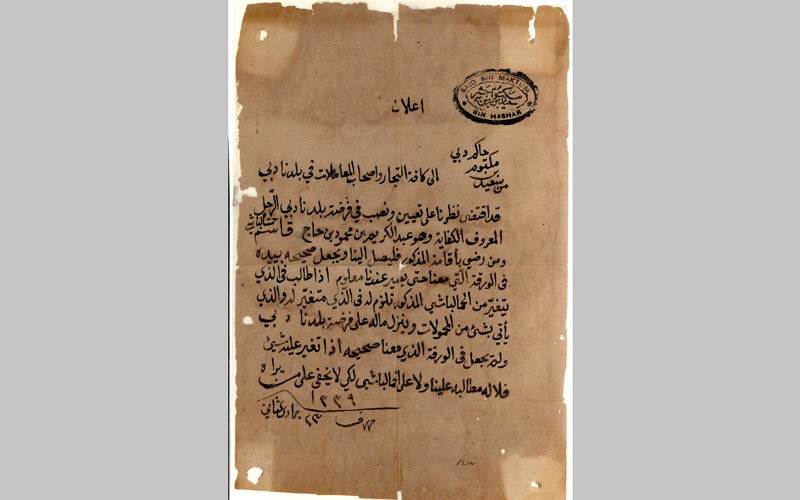 SAID BIN MAKTUM
BIN HASHAR
اعلان
حاكم دبي
مكتوم
بن
من سعيد
الى كافة التجار واصحاب المعاملات في بلدنا دبي
قد اقتضى نظرنا على تعيين ونصب في فرضة بلدنا دبي الرجل
المعروف الكفاية وهو عبد الكريم بن محمود بن حاج قاسم
ومن رضي باقامة المذكور فليصل الينا ويجعل صحيحه بيده
في الورقة التي معنا حتى يصير عندنا معلوم اذا طالب في الذي
يتغير من الحمالباشي المذكور نلزم له في الذي متغير له والذي
يأتي بشئ من المحمولات وينزل ماله على فرضة بلدنا دبي
ولم يجعل في الورقة الذي معنا صحيحه اذا تغير عليه شئ
فلا له مطالبه علينا ولا على الحمالباشي لكي لا يخفى على من يراه
١٣٣٩
حرر في ٢٣ جمادى الثاني